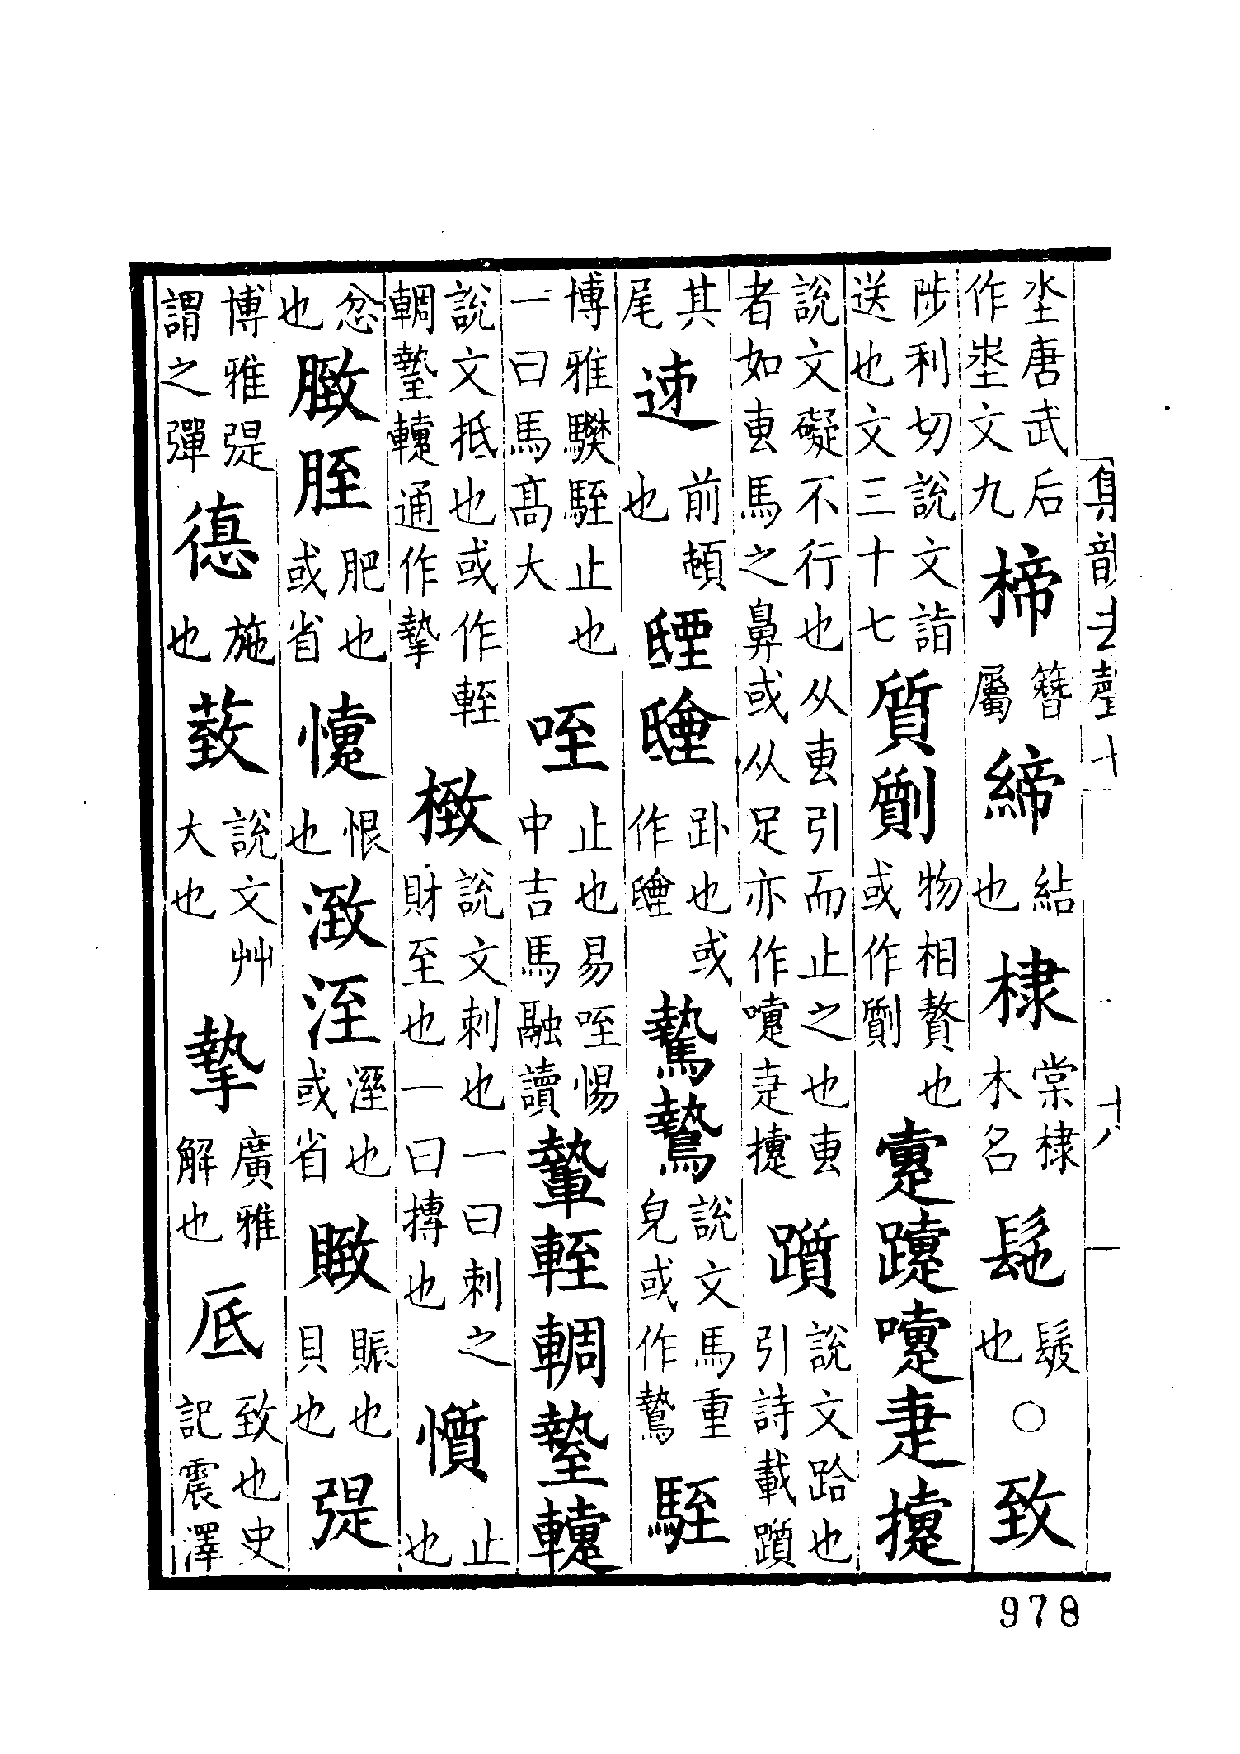 集韻去聲七 十八
坔唐武后作埊文九 楴 簪屬 締 結也 棣 棠棣木名 髢 髲也 ○ 致
陟利切說文詣送也文三十七 質劕 物相贅也或作劕 疐 嚏疌
說文礙不行也从叀引而止之也叀者如叀馬之鼻或从足亦作嚏疌 躓 說文跲也引詩載躓
其尾 前頓也 卧也或作 驇鷙 說文馬重皃或作鷙 駤
博雅 駤止也一曰馬高大 咥 止也易咥惕中吉馬融讀 輊輖
說文抵也或作輊輖 通作摯 㨖 說文刺也一曰刺之財至也一曰摶也 懫 止也
忿也 胵 肥也或省 懥 恨也 洷 溼也或省 賑也貝也
博雅 謂之彈 施也 說文艸大也 摯 廣雅解也 厎 致也史記震澤
978